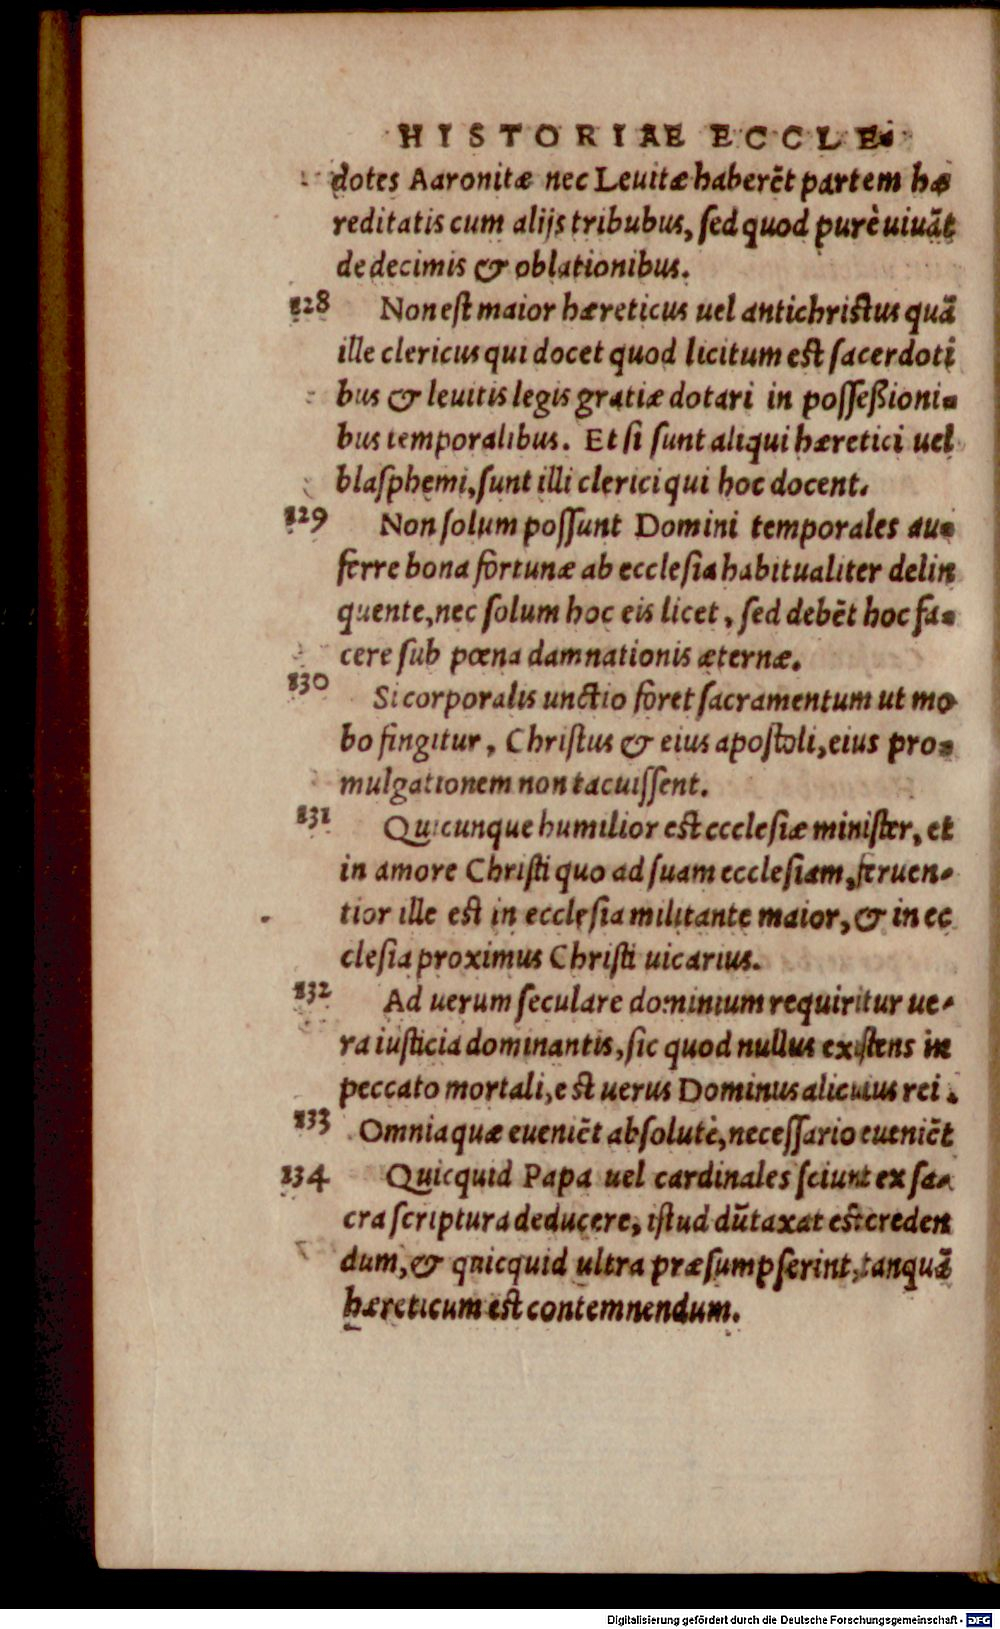 HISTORIAE ECCLE-
dotes Aaronitæ nec Leuitæ haberēt partem hæ
reditatis cum alijs tribubus, ſed quod purè uiuāt
de decimis & oblationibus.
128 Non eſt maior hæreticus uel antichriſtus quā
ille clericus qui docet quod licitum eſt ſacerdoti
bus & leuitis legis gratiæ dotari in poſſeßioni-
bus temporalibus. Et ſi ſunt aliqui hæretici uel
blaſphemi, ſunt illi clerici qui hoc docent.
129 Non ſolum poſſunt Domini temporales au-
ferre bona fortunæ ab eccleſia habitualiter delin
quente, nec ſolum hoc eis licet, ſed debēt hoc fa-
cere ſub pœna damnationis æternæ.
130 Si corporalis unctio foret ſacramentum ut mo
bo fingitur, Chriſtus & eius apoſtoli, eius pro-
mulgationem non tacuiſſent.
131 Quicunque humilior eſt eccleſiæ miniſter, et
in amore Chriſti quo ad ſuam eccleſiam, feruen-
tior ille eſt in eccleſia militante maior, & in ec
cleſia proximus Chriſti uicarius.
132 Ad uerum ſeculare dominium requiritur ue-
ra iuſticia dominantis, ſic quod nullus exiſtens in
peccato mortali, eſt uerus Dominus alicuius rei.
133 Omnia quæ eueniēt abſolutè, neceſſario eueniēt
134 Quicquid Papa uel cardinales ſciunt ex ſa-
cra ſcriptura deducere, iſtud dūtaxat eſt creden
dum, & quicquid ultra præſumpſerint, tanquā
hæreticum eſt contemnendum.
Digitalisierung gefördert durch die Deutsche Forschungsgemeinschaft - DFG